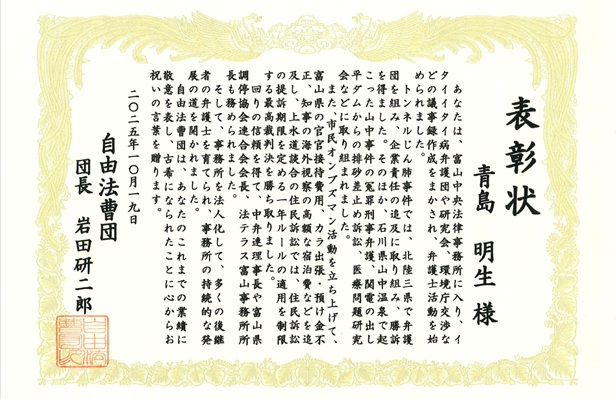 表彰状
青島 明生 様
あなたは、富山中央法律事務所に入り、イ
タイイタイ病弁護団や研究会、環境庁交渉な
どの議事録作成をまかされ、弁護士活動を始
められました。
トンネルじん肺事件では、北陸三県で弁護
団を組み、企業責任の追及に取り組み、勝訴
を得ました。そのほか、石川県山中温泉で起
こった山中事件の冤罪刑事弁護、関電の出し
平ダムからの排砂差止め訴訟、医療問題研究
会などに取り組まれました。
また、市民オンブズマン活動を立ち上げて、
富山県の官官接待費用、カラ出張・預け金不
正、知事の海外視察の高額な宿泊費などを追
及し、上水道談合の住民訴訟では、住民訴訟
の提訴期限を定めた一年ルールの適用を制限
する最高裁判決を勝ち取りました。
回りの信頼を得て、中弁連理事長や富山県
調停協会連合会会長、法テラス富山事務所所
長も務められました。
そして、事務所を法人化して、多くの後継
者の弁護士を育てられ、事務所の持続的な発
展の道を開かれました。
自由法曹団は、あなたのこれまでの業績に
敬意を表し、古希になられたことに心からお
祝いの言葉を贈ります。
二〇二五年一〇月一九日
自由法曹団
団長 岩田研二郎